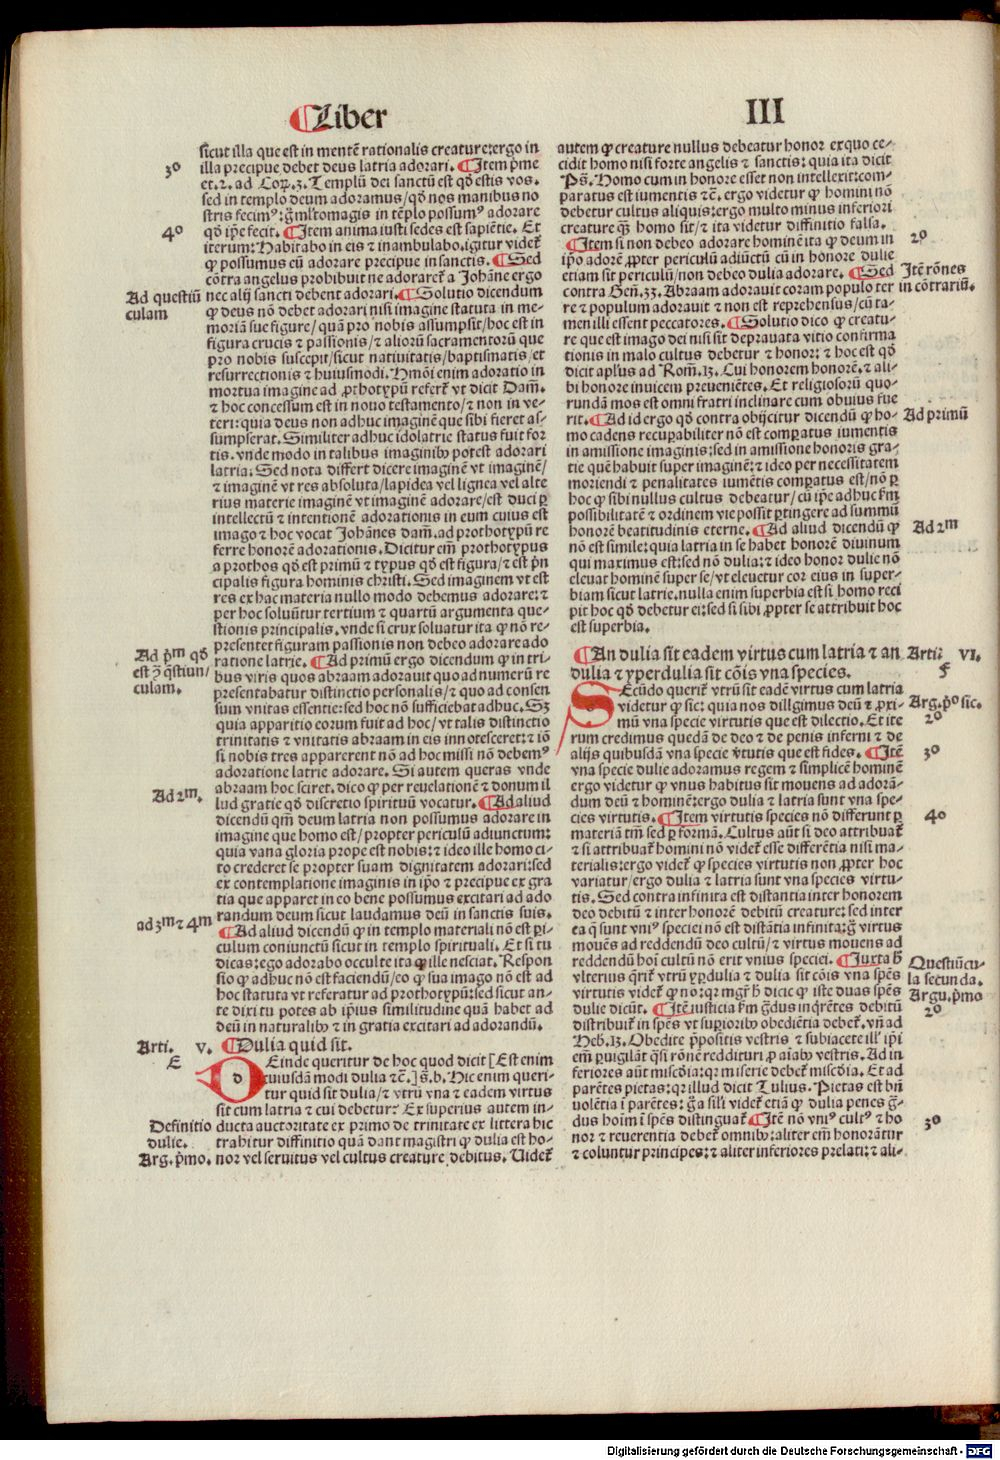 ¶Liber
III
sicut illa que est in mentē rationalis creature: ergo in
3º
illa precipue debet deus latria adorari. ¶Item p̄me
et .2. ad Corꝝ .3. Templū dei sanctū est qđ estis vos.
sed in templo deum adoramus/qđ nos manibus no
stris fecimꝰ: g̃ mĺtomagis in tēplo possumꝰ adorare
4º
qđ ip̄e fecit. ¶Item anima iusti sedes est sapiētie. Et
iterum: Habitabo in eis ⁊ inambulabo. igitur videt̄
ꝙ possumus eū adorare precipue in sanctis. ¶Sed
cōtra angelus prohibuit ne adoraret̄ a Johāne ergo
Ad questiū
culam
nec alij sancti debent adorari. ¶Solutio dicendum
ꝙ deus nōn debet adorari nisi imagine statuta in me-
moriā sue figure/quā pro nobis assumpsit/hoc est in
figura crucis ⁊ passionis/⁊ aliorū sacramentorū que
pro nobis suscepit/sicut natiuitatis/baptismatis/et
resurrectionis ⁊ huiusmodi. Hmōi enim adoratio in
mortua imagine ad ꝓthotypū refert̄ vt dicit Dam̄.
⁊ hoc concessum est in nouo testamento/⁊ non in ve-
teri: quia deus non adhuc imaginē que sibi fieret as-
sumpserat. Similiter adhuc idolatrie status fuit for
tis. vnde modo in talibus imaginibꝰ potest adorari
latria: Sed nota differt dicere imaginē vt imaginē/
⁊ imaginē vt res absoluta/lapidea vel lignea vel alte
rius materie imaginē vt imaginē adorare/est duci ꝑ
intellectū ⁊ intentionē adorationis in eum cuius est
imago ⁊ hoc vocat Johānes dam̄. ad prothotypū re
ferre honorē adorationis. Dicitur em̄ prothotypus
a prothos qđ est primū ⁊ typus qđ est figura/⁊ est p̄n
cipalis figura hominis christi. Sed imaginem vt est
res ex hac materia nullo modo debemus adorare: ⁊
per hoc soluūtur tertium ⁊ quartū argumenta que-
stionis principalis. vnde si crux soluatur ita ꝙ nō re-
presentet figuram passionis non debeo adorare ado
Ad p̄m qđ
est q̄stiun/
culam.
ratione latrie. ¶Ad primū ergo dicendum ꝙ in tri-
bus viris quos abraam adorauit quo ad numerū re
presentabatur distinctio personalis/⁊ quo ad consen
sum vnitas essentie: sed hoc nō sufficiebat adhuc. Sꝫ
quia apparitio eorum fuit ad hoc/vt talis distinctio
trinitatis ⁊ vnitatis abraam in eis innotesceret: ⁊ iō
si nobis tres apparerent nō ad hoc missi nō debemꝰ
adoratione latrie adorare. Si autem queras vnde
abraam hoc sciret. dico ꝙ per reuelationē ⁊ donum il
Ad 2m.
lud gratie qđ discretio spirituū vocatur. ¶Ad aliud
dicendū qm̄ deum latria non possumus adorare in
imagine que homo est/propter periculū adiunctum:
quia vana gloria prope est nobis: ⁊ ideo ille homo ci-
to crederet se propter suam dignitatem adorari: sed
ex contemplatione imaginis in ip̄o ⁊ precipue ex gra
tia que apparet in eo bene possumus excitari ad ado
ad 3m ⁊ 4m
randum deum sicut laudamus deū in sanctis suis.
¶Ad aliud dicendū ꝙ in templo materiali nōn est ꝑi-
culum coniunctū sicut in templo spirituali. Et si tu
dicas: ego adorabo occulte ita ꝙ ille nesciat. Respon
sio ꝙ adhuc nō est faciendū/eo ꝙ sua imago nōn est ad
hoc statuta vt referatur ad prothotypū: sed sicut an-
te dixi tu potes ab ip̄ius similitudine quā habet ad
deū in naturalibꝰ ⁊ in gratia excitari ad adorandū.
Arti. V.
¶Dulia quid sit.
E
DEinde queritur de hoc quod dicit [Est enim
d
cuiusdā modi dulia ⁊c̄.] s. b. Hic enim queri-
tur quid sit dulia/⁊ vtrū vna ⁊ eadem virtus
sit cum latria ⁊ cui debetur: Ex superius autem in-
Definitio
dulie.
ducta auctoritate ex primo de trinitate ex littera hic
trahitur diffinitio quā dant magistri ꝙ dulia est ho-
Arg. p̄mo.
nor vel seruitus vel cultus creature debitus. Videt̄
autem ꝙ creature nullus debeatur honor ex quo ce-
cidit homo nisi forte angelis ⁊ sanctis: quia ita dicit
Pś. Homo cum in honore esset non intellexit: com-
paratus est iumentis ⁊c̄. ergo videtur ꝙ homini nōn
debetur cultus aliquis: ergo multo minus inferiori
creature q̄ȝ homo sit/⁊ ita videtur diffinitio falsa.
2º
¶Item si non debeo adorare hominē ita ꝙ deum in
ip̄o adorē ꝓpter periculū adiūctū cū in honore dulie
etiam sit periculū/non debeo dulia adorare. ¶Sed
Itē rōnes
in cōtrariū.
contra Gen̄. 33. Abraam adorauit coram populo ter
re ⁊ populum adorauit ⁊ non est reprehensus/cū ta-
men illi essent peccatores. ¶Solutio dico ꝙ creatu-
re que est imago dei nisi sit deprauata vitio confirma
tionis in malo cultus debetur ⁊ honor: ⁊ hoc est qđ
dicit apĺus ad Rom̄. 13. Cui honorem honorē. ⁊ ali-
bi honore inuicem preuenientes. Et religiosorū quo-
rundā mos est omni fratri inclinare cum obuius fue
rit. ¶Ad id ergo qđ contra obijcitur dicendū ꝙ ho-
Ad primū
mo cadens recuꝑabiliter nō est comꝑatus iumentis
in amissione imaginis: sed in amissione honoris gra-
tie quē habuit super imaginē: ⁊ ideo per necessitatem
moriendi ⁊ penalitates iumētis comꝑatus est/nō ꝑ
hoc ꝙ sibi nullus cultus debeatur/cū ip̄e adhuc ẜm
possibilitatē ⁊ ordinem vie possit ꝑtingere ad summū
honorē beatitudinis eterne. ¶Ad aliud dicendū ꝙ
Ad 2m
nō est simile: quia latria in se habet honorē diuinum
qui maximus est: sed nō dulia: ⁊ ideo honor dulie nō
eleuat hominē super se/vt eleuetur cor eius in super-
biam sicut latrie. nulla enim superbia est si homo reci
pit hoc qđ debetur ei: sed si sibi ꝓpter se attribuit hoc
est superbia.
¶An dulia sit eadem virtus cum latria ⁊ an
Arti: VI.
dulia ⁊ yperdulia sit cōis vna species.
F
SEcūdo querit̄ vtrū sit eadē virtus cum latria
videtur ꝙ sic: quia nos diligimus deū ⁊ ꝓxi-
Arg. p̄º sic.
mū vna specie virtutis que est dilectio. Et ite
2º
rum credimus quedā de deo ⁊ de penis inferni ⁊ de
alijs quibusdā vna specie v̄tutis que est fides. ¶Itē
3º
vna specie dulie adoramus regem ⁊ simplicē hominē
ergo videtur ꝙ vnus habitus sit mouens ad adorā-
dum deū ⁊ hominē: ergo dulia ⁊ latria sunt vna spe-
cies virtutis. ¶Item virtutis species nō differunt ꝑ
4º
materiā tm̄ sed ꝑ formā. Cultus aūt si deo attribuat̄
⁊ si attribuat̄ homini nō videt̄ esse differētia nisi ma-
terialis: ergo videt̄ ꝙ species virtutis non ꝓpter hoc
variatur/ergo dulia ⁊ latria sunt vna species virtu-
tis. Sed contra infinita est distantia inter honorem
deo debitū ⁊ inter honorē debitū creature: sed inter
ea q̄ sunt vniꝰ speciei nō est distātia infinita: g̃ virtus
mouēs ad reddendū deo cultū/⁊ virtus mouens ad
reddendū hoi cultū nō erit vnius speciei. ¶Juxta h̄
Questiūcu-
la secunda.
vlterius q̄rit̄ vtrū yꝑdulia ⁊ dulia sit cōis vna sp̄es
Argu. p̄mo
virtutis videt̄ ꝙ nō: qr mgr̄ h̄ dicit ꝙ iste duas sp̄es
2º
dulie dicūt. ¶Itē iusticia ẜm g̃dus inq̄rētes debitū
distribuit̄ in sp̄es vt suꝑioribꝰ obediētia debet̄. vn̄ ad
Heb. 13. Obedite p̄positis vestris ⁊ subiacete illi ip̄i
em̄ ꝑuigilāt q̄si rōnē reddituri ꝓ aīabꝰ vestris. Ad in
feriores aūt misc̄dia: qr miserie debet̄ misc̄dia. Et ad
parētes pietas: qr illud dicit Tulius. Pietas est bn̄
uolētia ī parētes: g̃a siĺr videt̄ etiā ꝙ dulia penes g̃-
dus hoim ī sp̄es distinguat̄. ¶Itē nō vniꝰ cultꝰ ⁊ ho
3º
nor ⁊ reuerentia debet̄ omnibꝰ: aliter em̄ honorātur
⁊ coluntur principes: ⁊ aliter inferiores prelati: ⁊ ali-
Digitalisierung gefördert durch die Deutsche Forschungsgemeinschaft - DFG